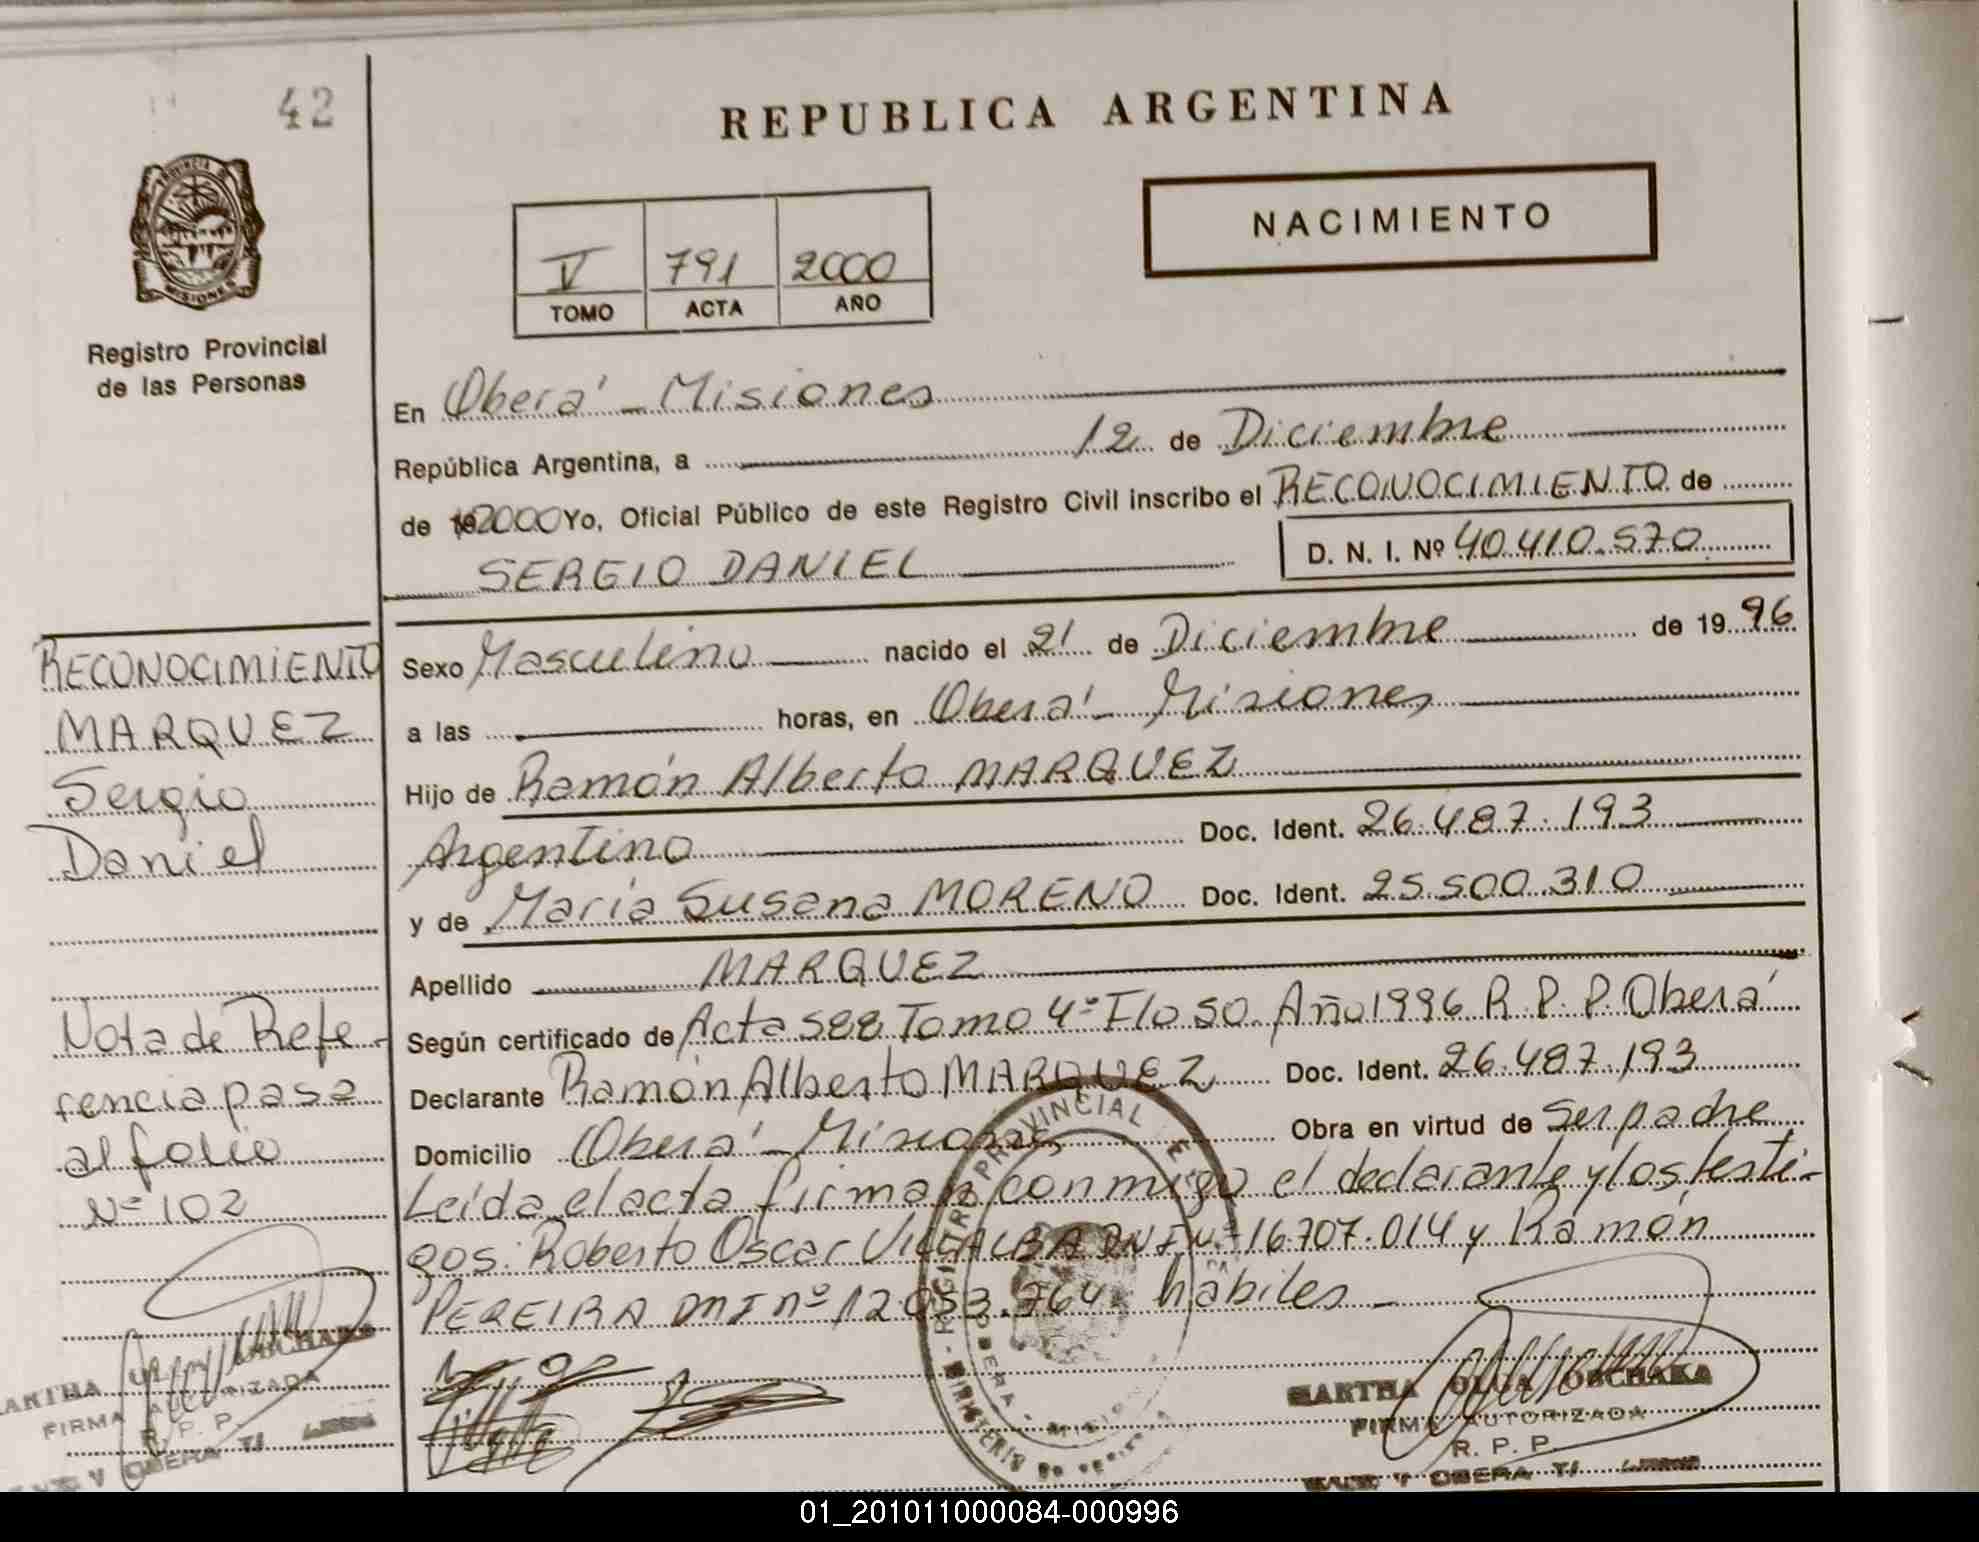 42
REPUBLICA ARGENTINA
NACIMIENTO
V 791 2000
TOMO ACTA AÑO
PROVINCIA D
MISIONES
Registro Provincial
de las Personas
En Oberá - Misiones
República Argentina, a 12 de Diciembre
de 2000 Yo, Oficial Público de este Registro Civil inscribo el RECONOCIMIENTO de
SERGIO DANIEL D. N. I. Nº 40.410.570
Sexo Masculino nacido el 21 de Diciembre de 1996
a las horas, en Oberá - Misiones
Hijo de Ramón Alberto MARQUEZ
Argentino Doc. Ident. 26.487.193
y de María Susana MORENO Doc. Ident. 25.500.310
Apellido MARQUEZ
Según certificado de Acta 588 Tomo 4º Flo 50. Año 1996 R. P. P. Oberá
Declarante Ramón Alberto MARQUEZ Doc. Ident. 26.487.193
Domicilio Oberá - Misiones Obra en virtud de Ser padre
Leída el acta firman conmigo el declarante y los testi-
gos: Roberto Oscar VILLALBA DNI Nº 16.707.014 y Ramón
PEREIRA DNI nº 12.053.764 hábiles -
RECONOCIMIENTO
MARQUEZ
Sergio
Daniel
Nota de Refe-
rencia pasa
al folio
Nº 102
MARTHA OLGA
FIRMA AUTORIZADA
R. P. P.
OBERA
REGISTRO PROVINCIAL DE
OBERA
MINISTERIO DE
MARTHA OLGA
FIRMA AUTORIZADA
R. P. P.
OBERA
01_201011000084-000996